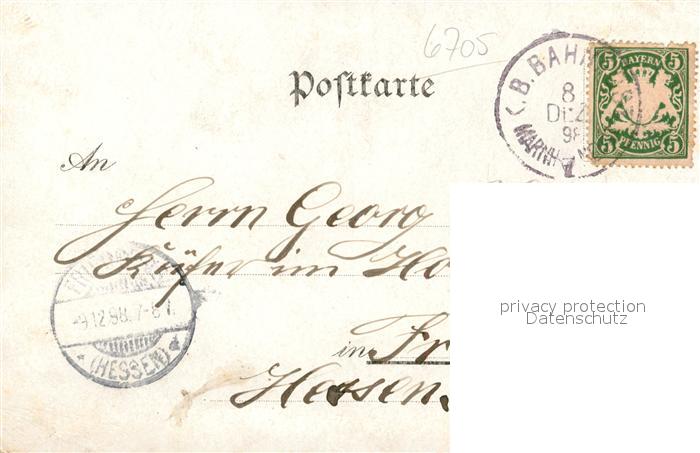 6705
Postkarte
K.B. BAHNP
8
DEZ
98
MARNH
5 BAYERN 5
5 PFENNIG 5
An
Herrn Georg
Küfer im Ho
9.12.98. 7-8
* (HESSEN) *
in Fr
Hessen.
privacy protection
Datenschutz